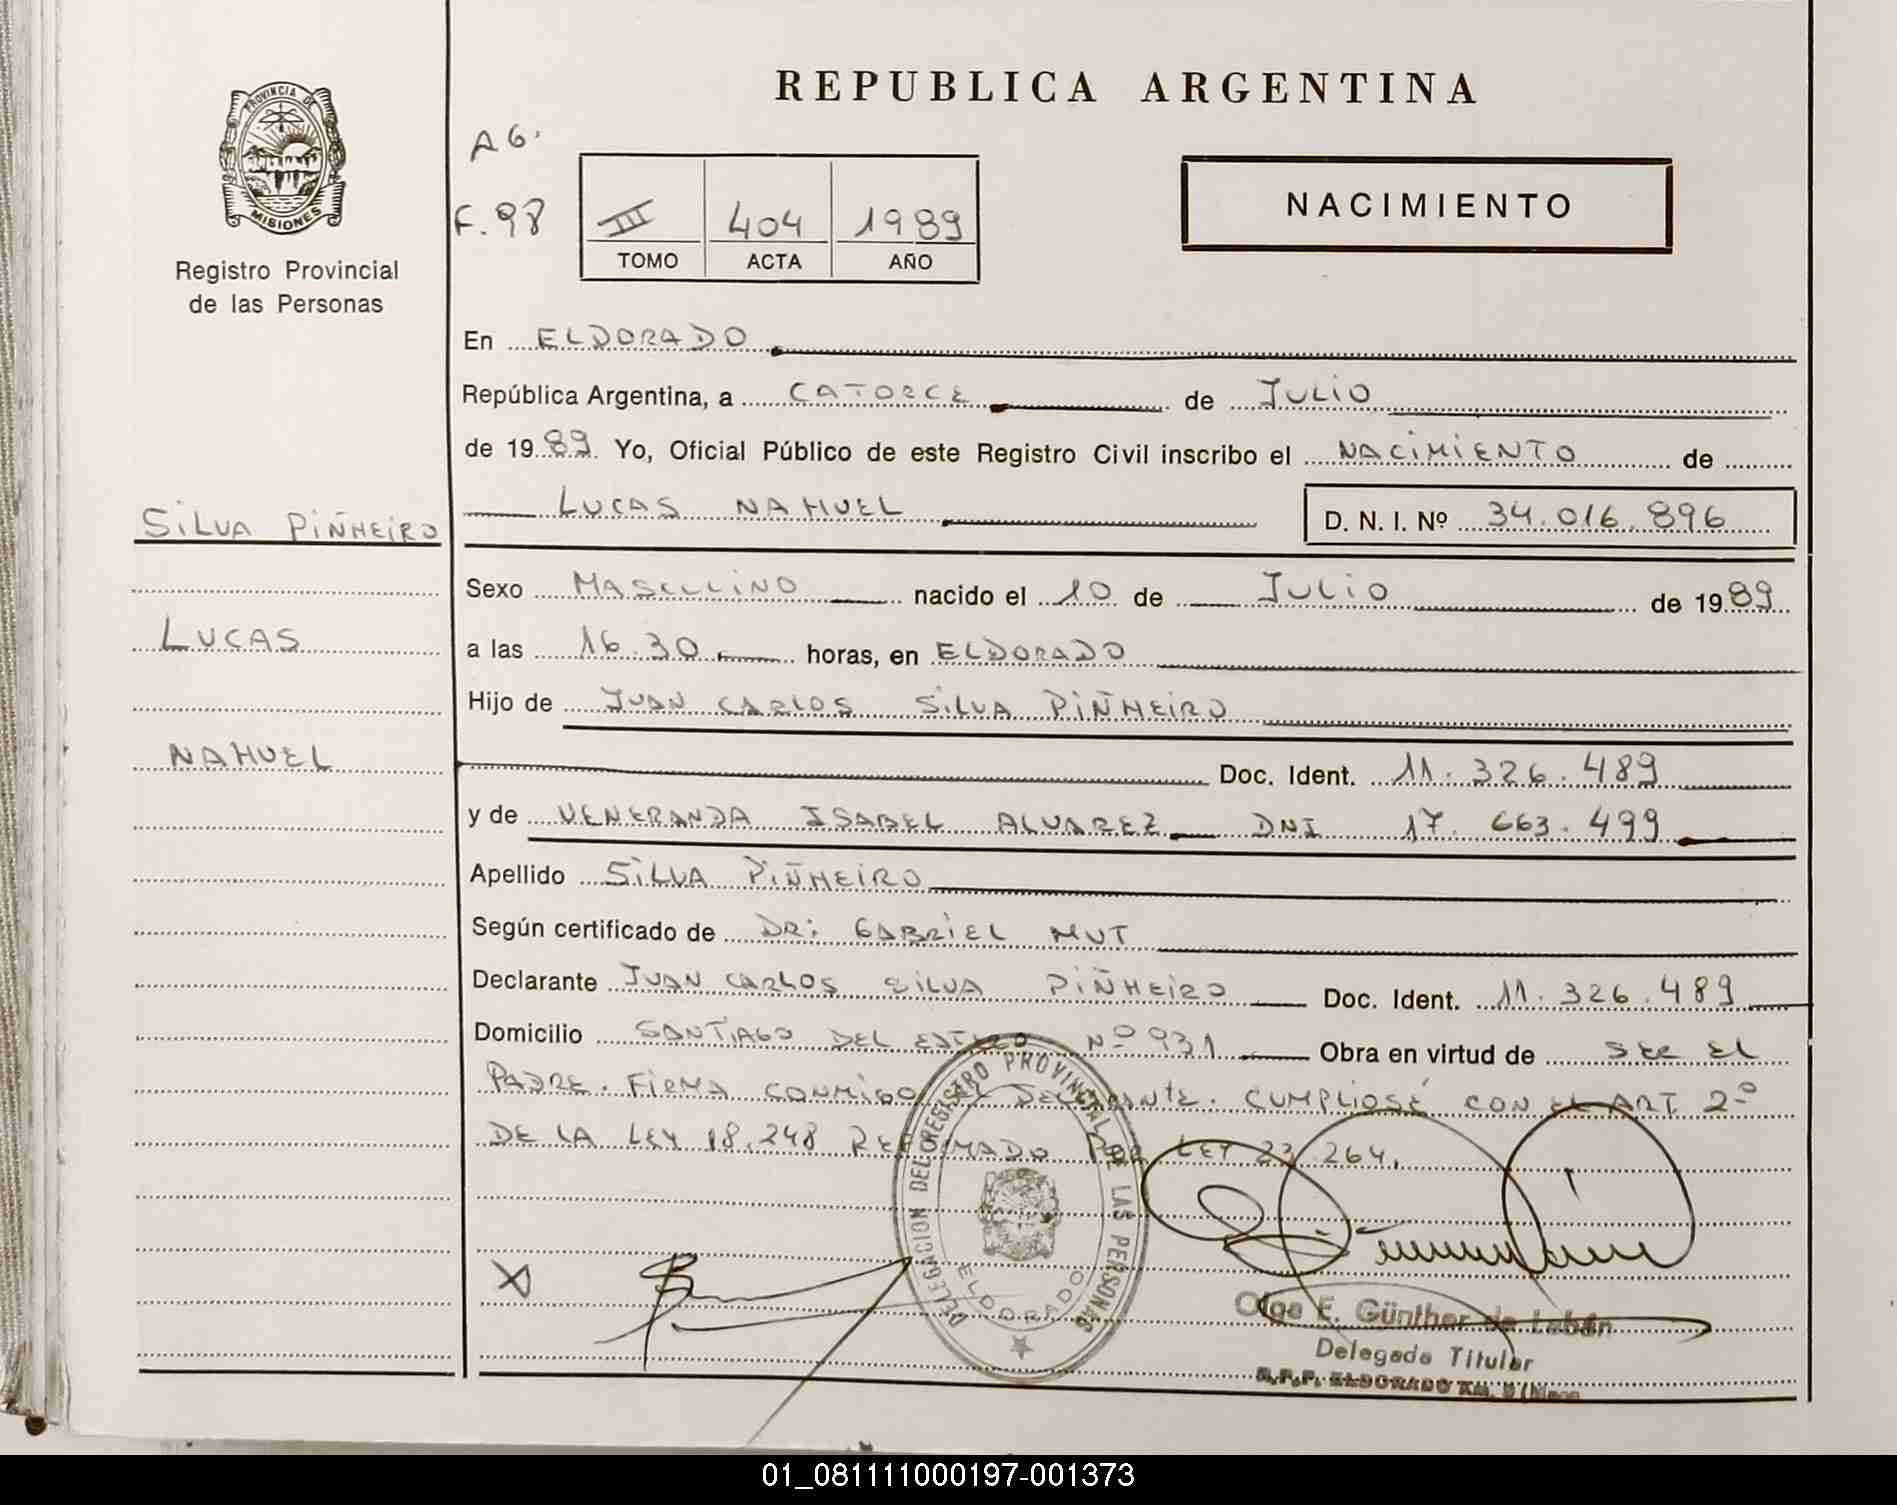 PROVINCIA DE
MISIONES
Registro Provincial
de las Personas
SILVA PIÑHEIRO
LUCAS
NAHUEL
REPUBLICA ARGENTINA
A 6.
F. 98
III 404 1989
TOMO ACTA AÑO
NACIMIENTO
En ELDORADO
República Argentina, a CATORCE de JULIO
de 1989. Yo, Oficial Público de este Registro Civil inscribo el NACIMIENTO de
LUCAS NAHUEL D. N. I. Nº 34.016.896
Sexo MASCULINO nacido el 10 de JULIO de 1989
a las 16.30 horas, en ELDORADO
Hijo de JUAN CARLOS SILVA PIÑHEIRO
Doc. Ident. 11.326.489
y de VENERANDA ISABEL ALVAREZ DNI 17.663.499
Apellido SILVA PIÑHEIRO
Según certificado de DR: GABRIEL MUT
Declarante JUAN CARLOS SILVA PIÑHEIRO Doc. Ident. 11.326.489
Domicilio SANTIAGO DEL ESTERO Nº 931 Obra en virtud de SER EL
PADRE. FIRMA CONMIGO EL DECLARANTE. CUMPLIOSE CON EL ART 2º
DE LA LEY 18.248 REFORMADO POR LEY 23.264.
DELEGACION DEL REGISTRO PROVINCIAL DE LAS PERSONAS
ELDORADO
X
Olga E. Günther de Lebán
Delegada Titular
R.P.P. ELDORADO KM. 9
01_081111000197-001373